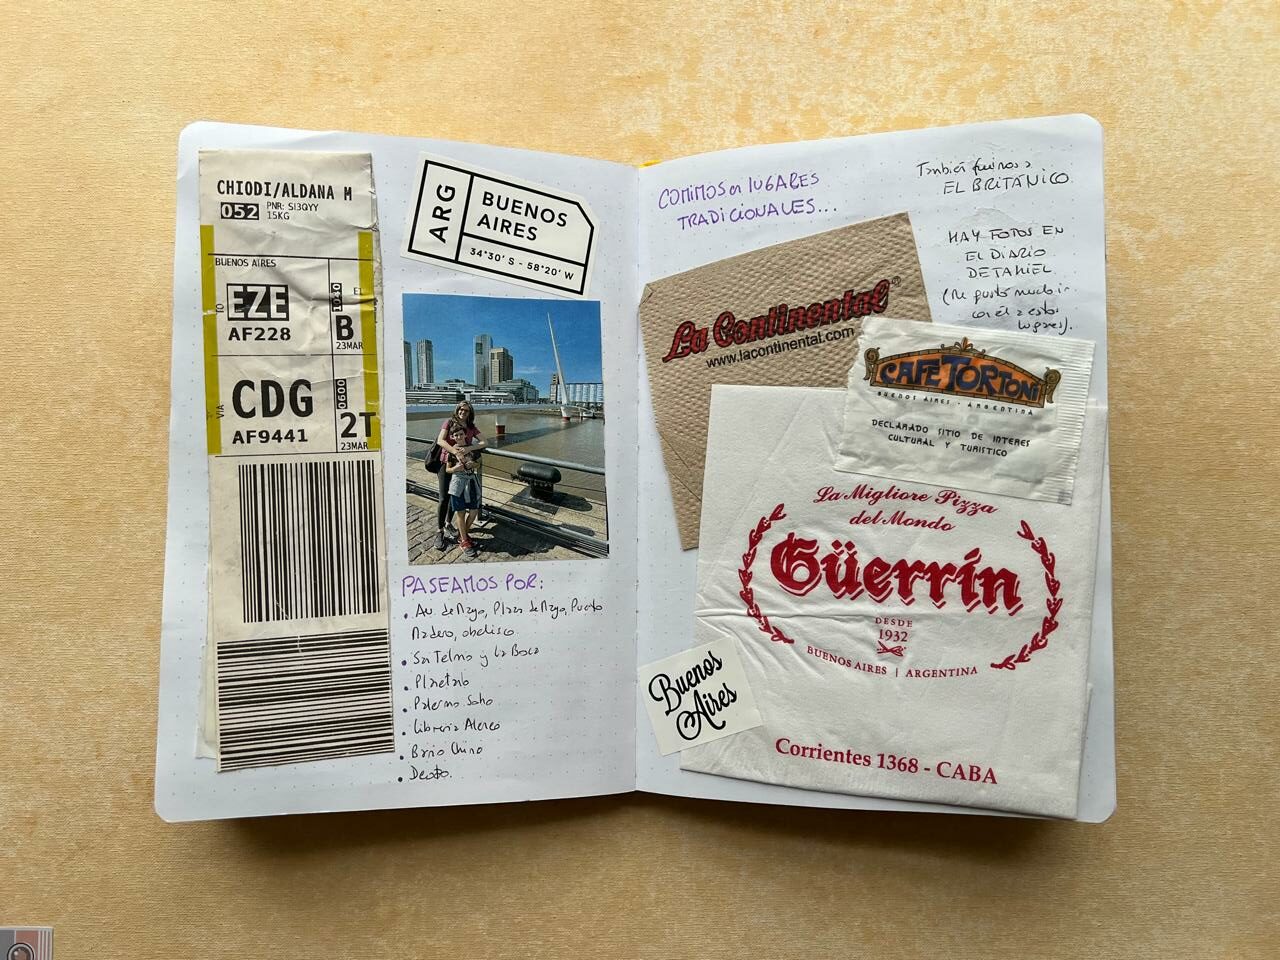 CHIODI/ALDANA M
052 PNR: SI3QYY
15KG
BUENOS AIRES
TO
EZE
AF228
1040
B
23MAR
VIA
CDG
AF9441
0600
2T
23MAR
ARG
BUENOS
AIRES
34°30' S - 58°20' W
PASEAMOS POR:
• Av. de Mayo, Plaza de Mayo, Puerto
Madero, obelisco.
• San Telmo y La Boca
• Planetario
• Palermo Soho
• Librería Ateneo
• Barrio Chino
• Devoto.
COMIMOS en LUGARES
TRADICIONALES...
También fuimos a
EL BRITÁNICO.
HAY FOTOS EN
EL DIARIO
DE TAHIEL
(Me gustó mucho ir
con él a estos
lugares).
La Continental
www.lacontinental.com
CAFE TORTONI
BUENOS AIRES - ARGENTINA
DECLARADO SITIO DE INTERES
CULTURAL Y TURISTICO
La Migliore Pizza
del Mondo
Güerrín
DESDE
1932
BUENOS AIRES | ARGENTINA
Corrientes 1368 - CABA
Buenos
Aires